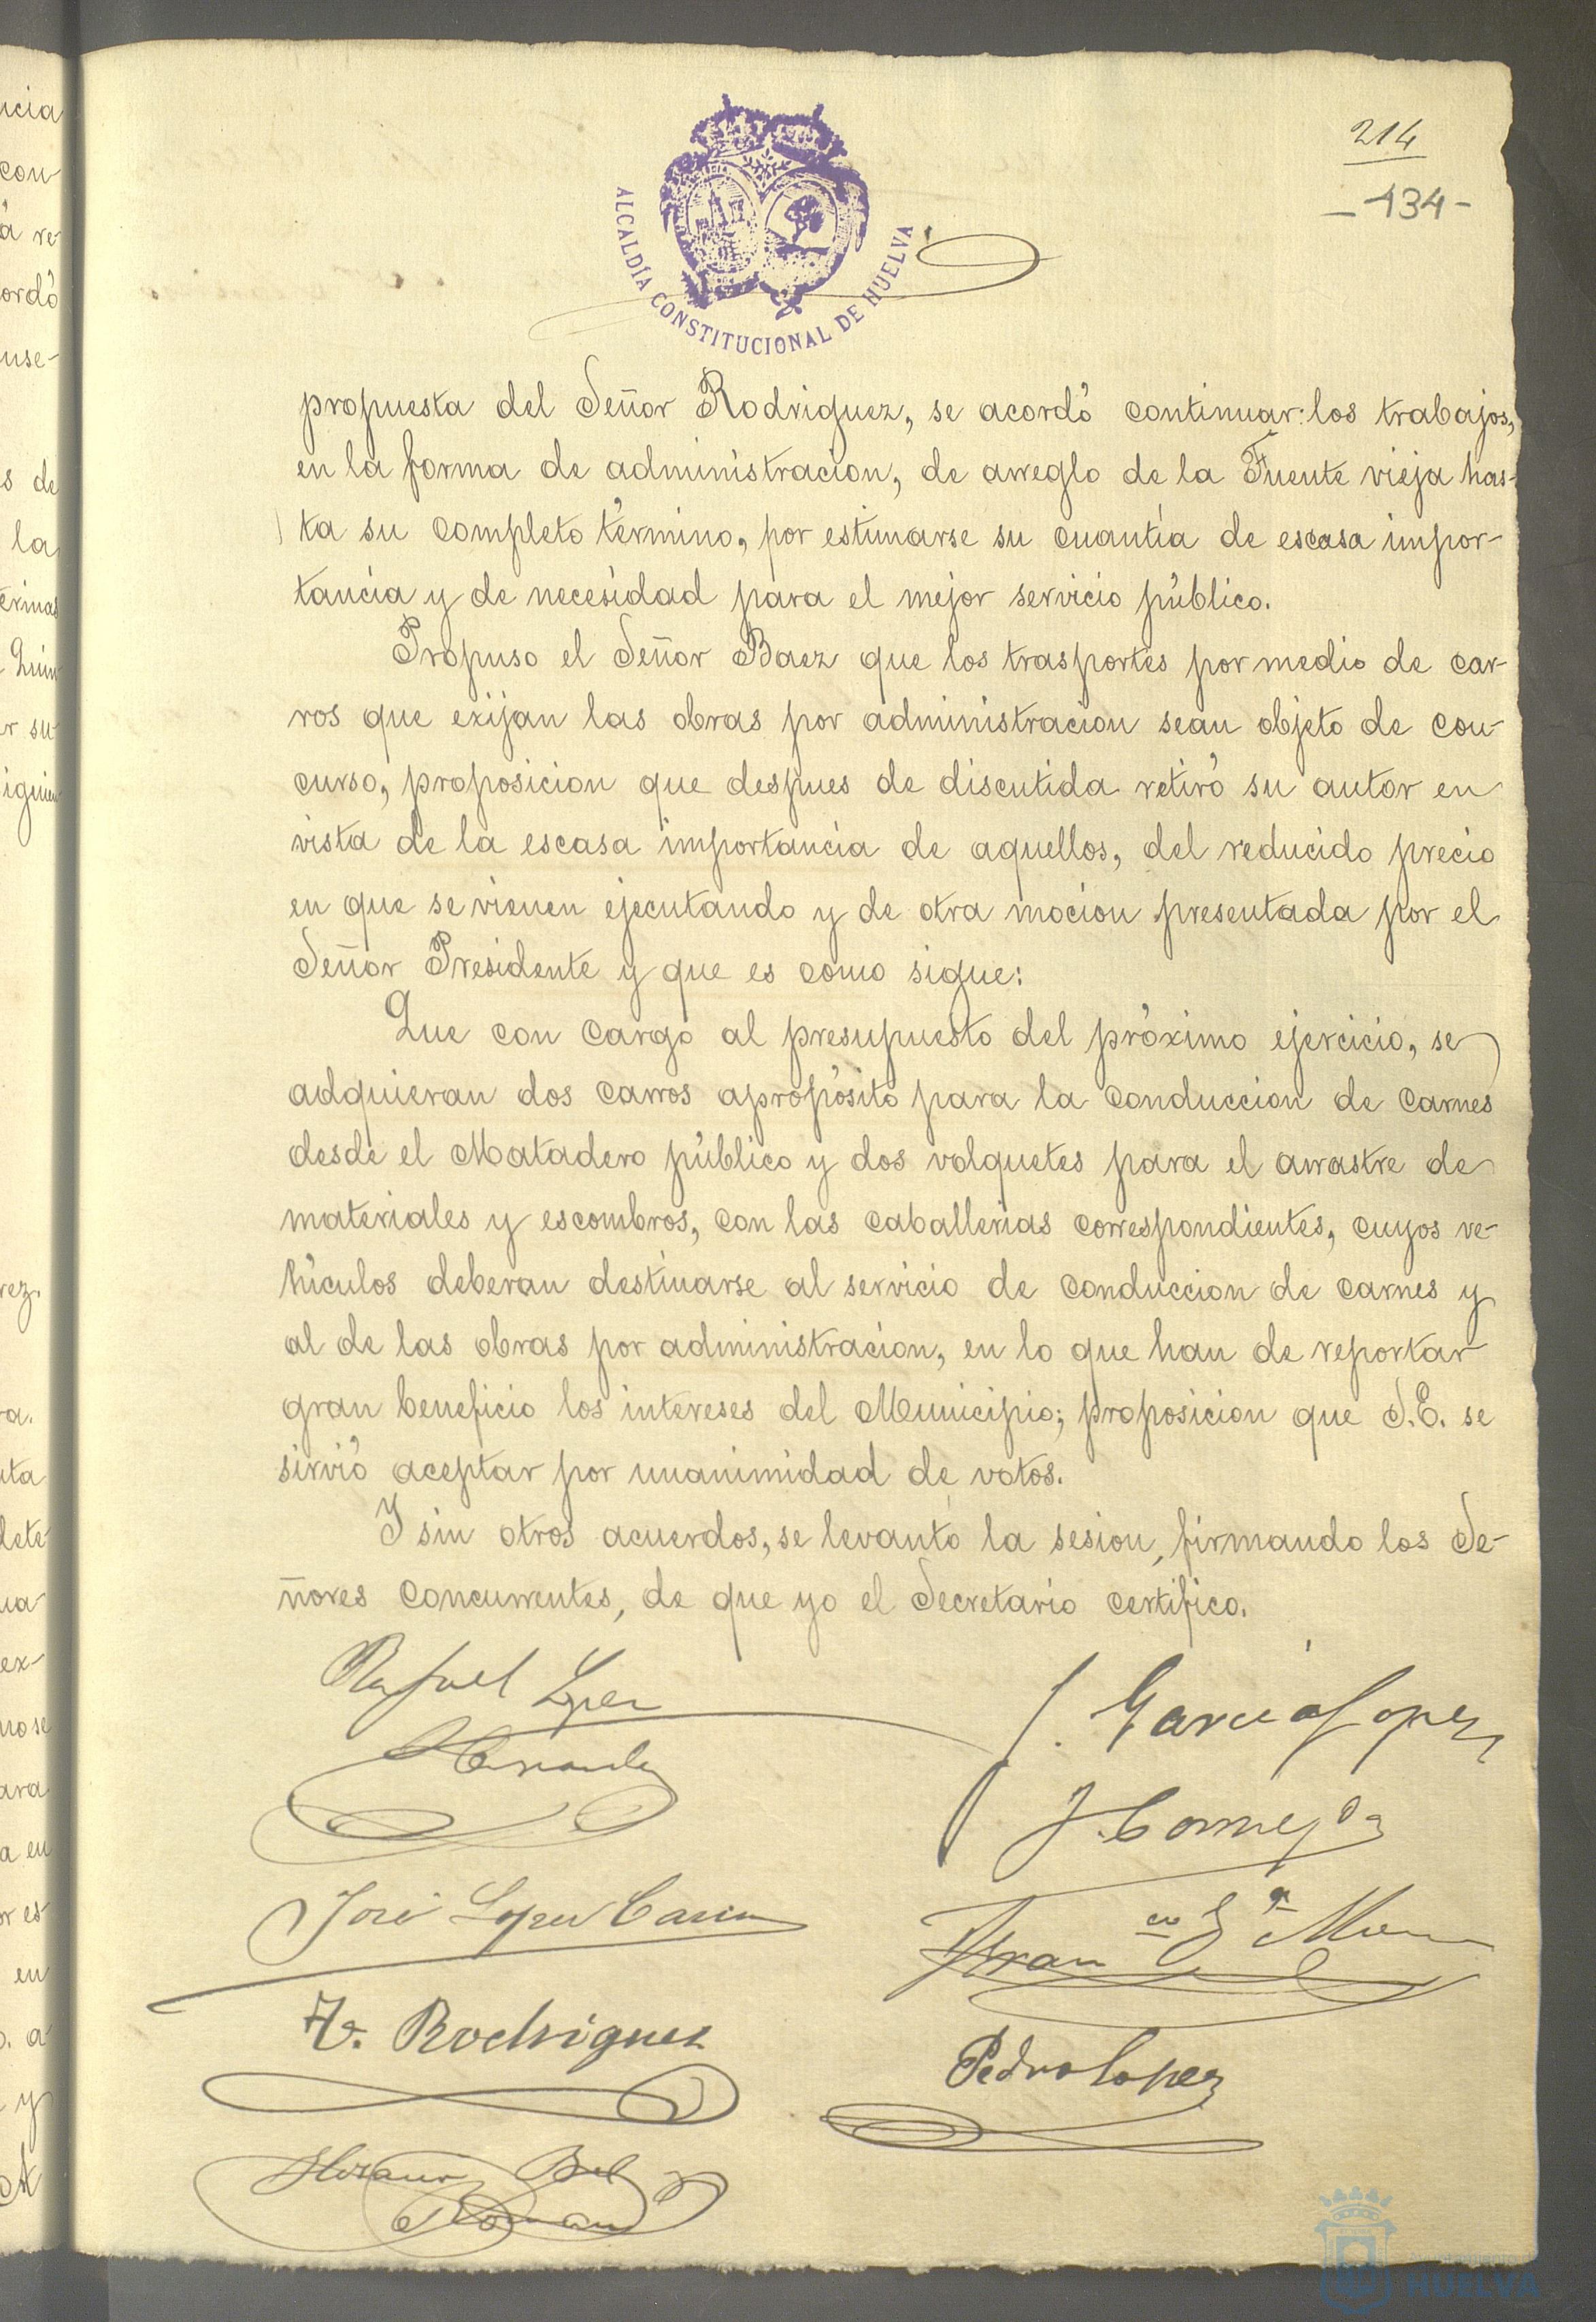 214
- 134 -
ALCALDÍA CONSTITUCIONAL DE HUELVA
propuesta del Señor Rodriguez, se acordó continuar los trabajos,
en la forma de administracion, de arreglo de la Fuente vieja has-
ta su completo término, por estimarse su cuantía de escasa impor-
tancia y de necesidad para el mejor servicio público.
Propuso el Señor Baez que los trasportes por medio de car-
ros que exijan las obras por administracion sean objeto de con-
curso, proposicion que despues de discutida retiró su autor en
vista de la escasa importancia de aquellos, del reducido precio
en que se vienen ejecutando y de otra mocion presentada por el
Señor Presidente y que es como sigue:
Que con cargo al presupuesto del próximo ejercicio, se
adquieran dos carros apropósito para la conduccion de carnes
desde el Matadero público y dos volquetes para el arrastre de
materiales y escombros, con las caballerias correspondientes, cuyos ve-
hículos deberan destinarse al servicio de conduccion de carnes y
al de las obras por administracion, en lo que han de reportar
gran beneficio los intereses del Municipio; proposicion que S.E. se
sirvió aceptar por unanimidad de votos.
Y sin otros acuerdos, se levantó la sesion, firmando los Se-
ñores concurrentes, de que yo el Secretario certifico.
Rafael Lopez
Hernandez
J. Garcia Lopez
J. Cornejo
José Lopez
Fran co G a
F. Rodriguez
Pedro Lopez
Roman
HUELVA